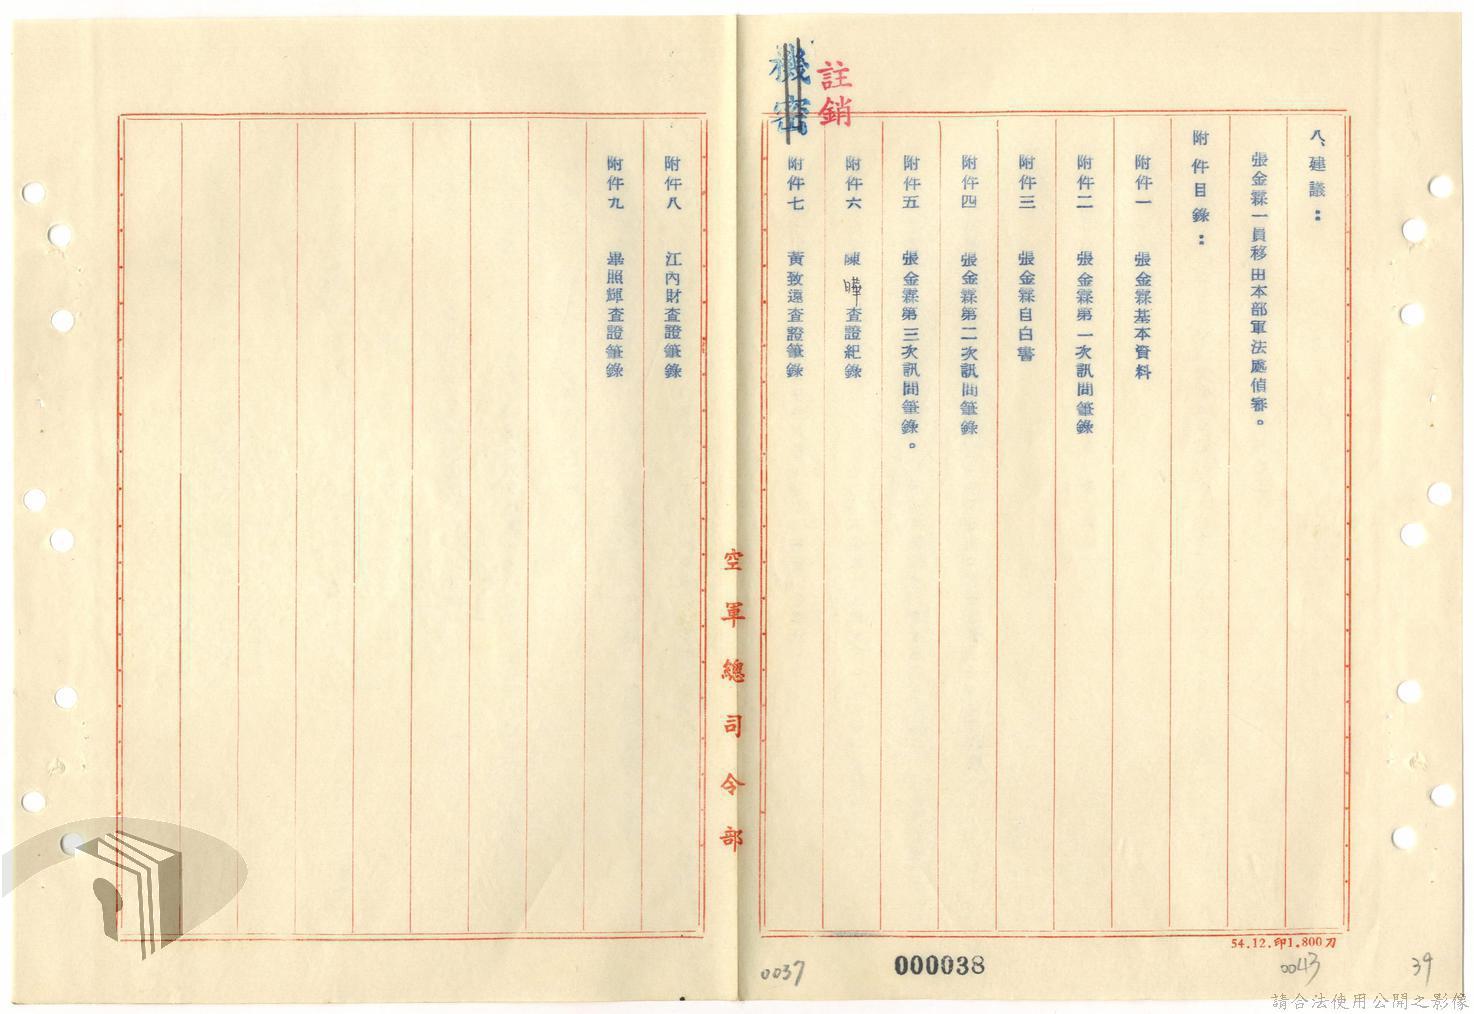 機密
註銷
八、建議：
張金霖一員移由本部軍法處偵審。
附件目錄：
附件一　張金霖基本資料
附件二　張金霖第一次訊問筆錄
附件三　張金霖自白書
附件四　張金霖第二次訊問筆錄
附件五　張金霖第三次訊問筆錄。
附件六　陳曄查證紀錄
附件七　黃致遠查證筆錄
附件八　江內財查證筆錄
附件九　畢照輝查證筆錄
空軍總司令部
54.12.印1.800刀
0037
000038
0043
39
請合法使用公開之影像